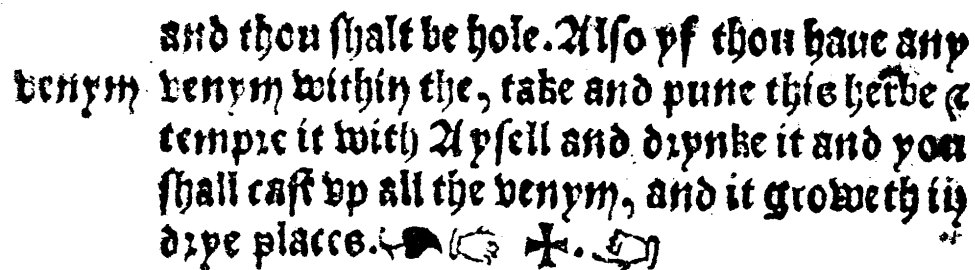 and thou ſhalt be hole. Alſo yf thou haue any
venym
venym within the, take and pune this herbe &
tempre it with Ayſell and drynke it and you
ſhall caſt vp all the venym, and it groweth in
drye places. ☙ ☞ ✠. ☜